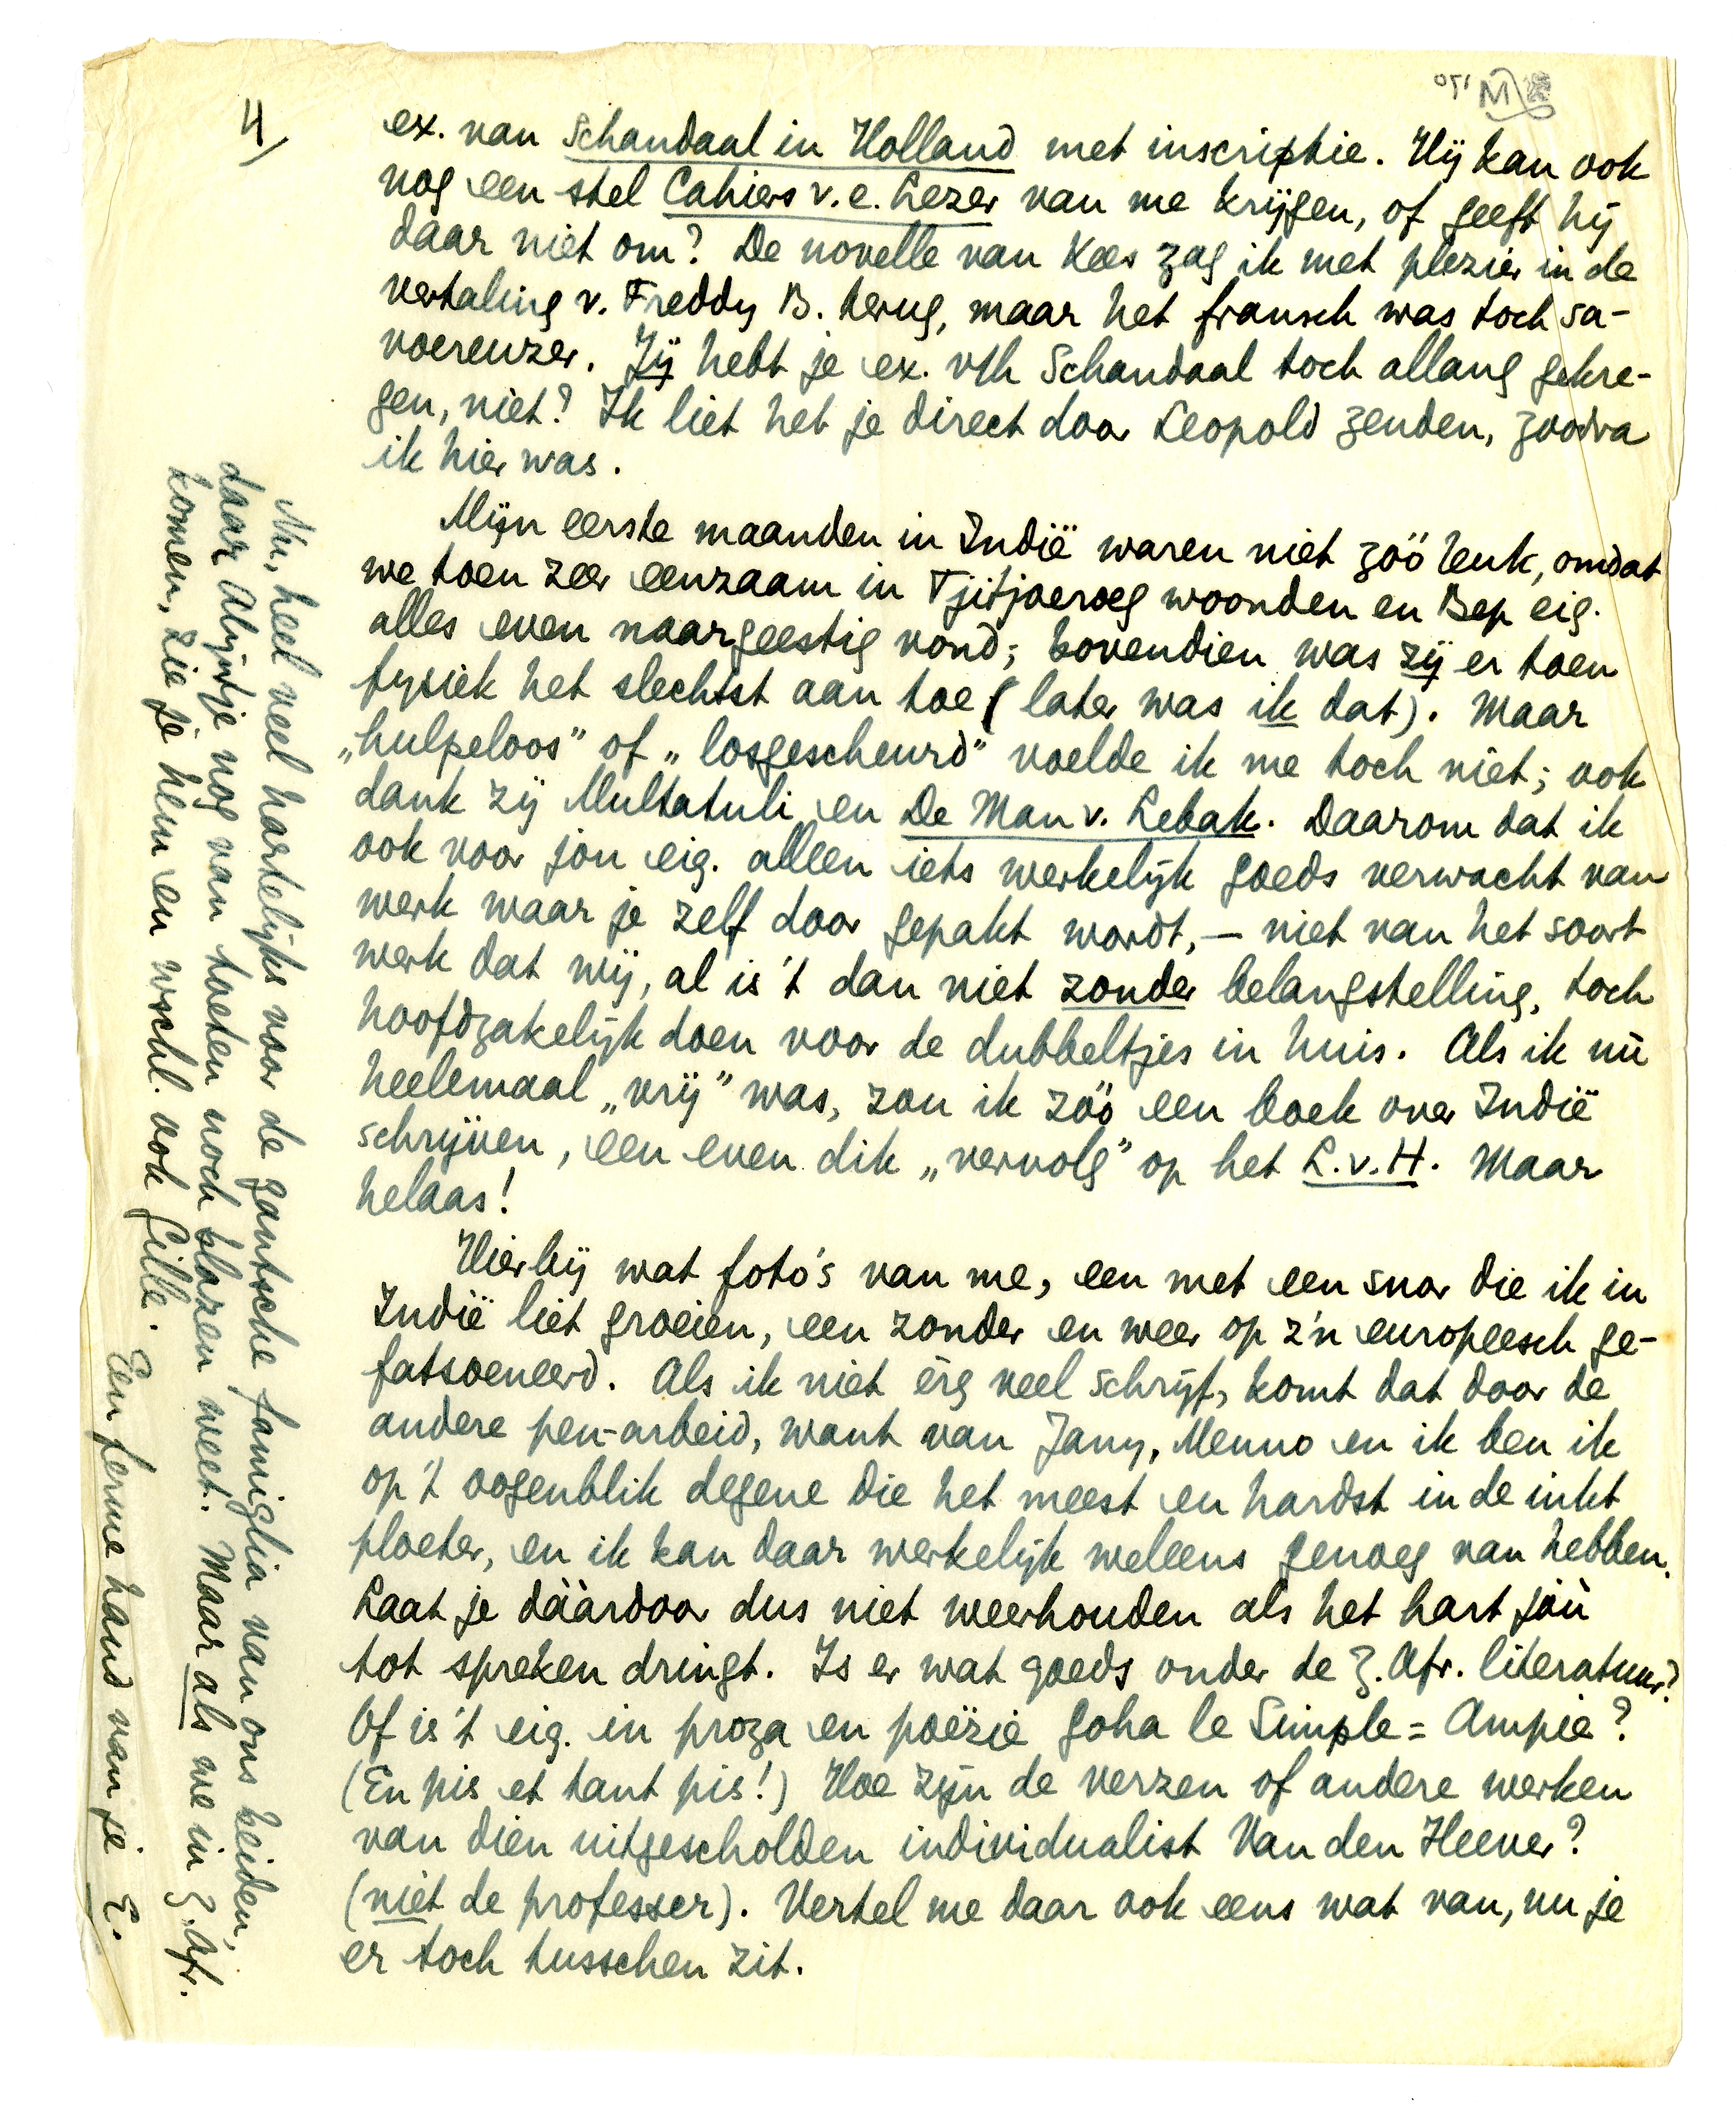 4/
ex. van Schandaal in Holland met inscriptie. Hij kan ook
nog een stel Cahiers v. e. Lezer van me krijgen, of geeft hij
daar niet om? De novelle van Kees zag ik met plezier in de
vertaling v. Freddy B. terug, maar het fransch was toch sa-
voereuzer. Jij hebt je ex. v/h Schandaal toch allang gekre-
gen, niet? Ik liet het je direct door Leopold zenden, zoodra
ik hier was.
Mijn eerste maanden in Indië waren niet zóó leuk, omdat
we toen zeer eenzaam in Tjitjoeroeg woonden en Bep eig.
alles even naargeestig vond; bovendien was zij er toen
fysiek het slechtst aan toe (later was ik dat). Maar
„hulpeloos” of „losgescheurd” voelde ik me toch niet; ook
dank zij Multatuli en De Man v. Lebak. Daarom dat ik
ook voor jou eig. alleen iets werkelijk goeds verwacht van
werk waar je zelf door gepakt wordt, — niet van het soort
werk dat wij, al is 't dan niet zonder belangstelling, toch
hoofdzakelijk doen voor de dubbeltjes in huis. Als ik nù
heelemaal „vrij” was, zou ik zóó een boek over Indië
schrijven, een even dik „vervolg” op het L.v.H. Maar
helaas!
Hierbij wat foto's van me, een met een snor die ik in
Indië liet groeien, een zonder en weer op z'n europeesch ge-
fatsoeneerd. Als ik niet èrg veel schrijf, komt dat door de
andere pen-arbeid, want van Jany, Menno en ik ben ik
op 't oogenblik degene die het meest en hardst in de inkt
ploeter, en ik kan daar werkelijk weleens genoeg van hebben.
Laat je dààrdoor dus niet weerhouden als het hart jóù
tot spreken dringt. Is er wat goeds onder de Z. Afr. literatuur?
Of is 't eig. in proza en poëzie Goha le Simple = Ampie?
(En pis et tant pis!) Hoe zijn de verzen of andere werken
van dien uitgescholden individualist Van den Heever?
(niet de professer). Vertel me daar ook eens wat van, nu je
er toch tusschen zit.
Nu, heel veel hartelijks voor de gantsche famiglia van ons beiden,
daar Alijdtje nog van toeten noch blazen weet. Maar als we in Z. Afr.
komen, zie je hem en wschl. ook Gille. Een ferme hand van je E.